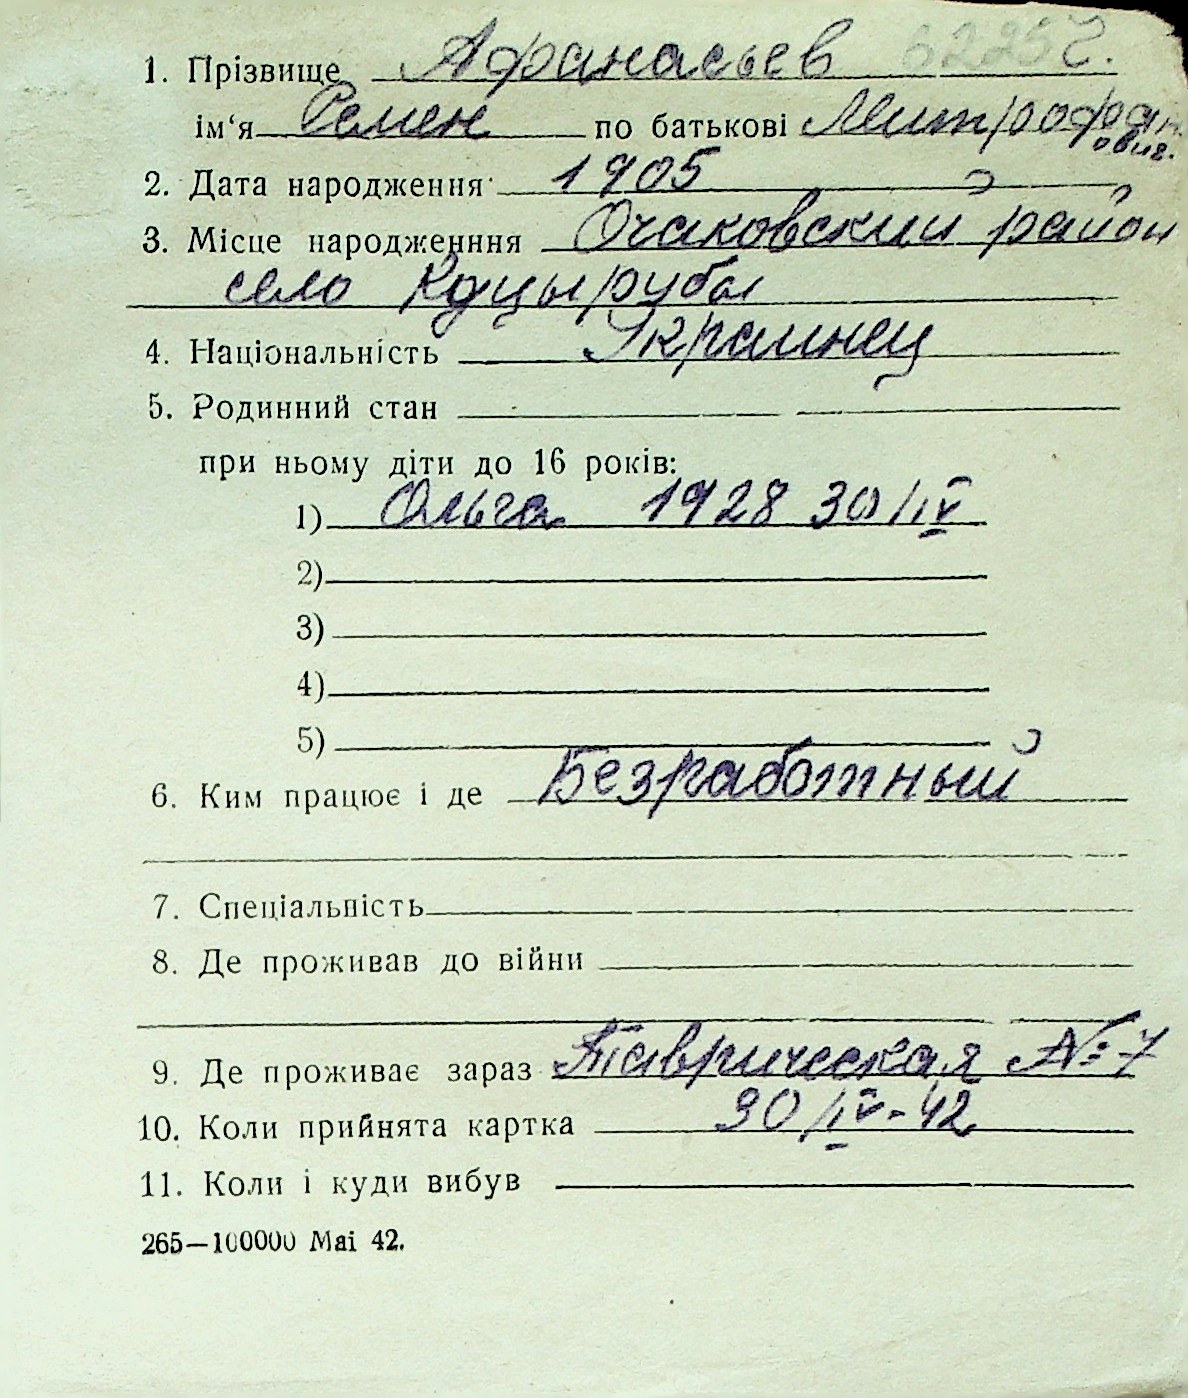 1. Прізвище Афанасьев
ім‘я Семен по батькові Митрофан
ович.
2. Дата народження 1905
3. Місце народженння Очаковский район
село Куцырубы
4. Національність Украинец
5. Родинний стан
при ньому діти до 16 років:
1) Ольга 1928 30/IV
2)
3)
4)
5)
6. Ким працює і де Безработный
7. Спеціальність
8. Де проживав до війни
9. Де проживає зараз Таврическая № 7
10. Коли прийнята картка 30/IV-42
11. Коли і куди вибув
265—100000 Mai 42.